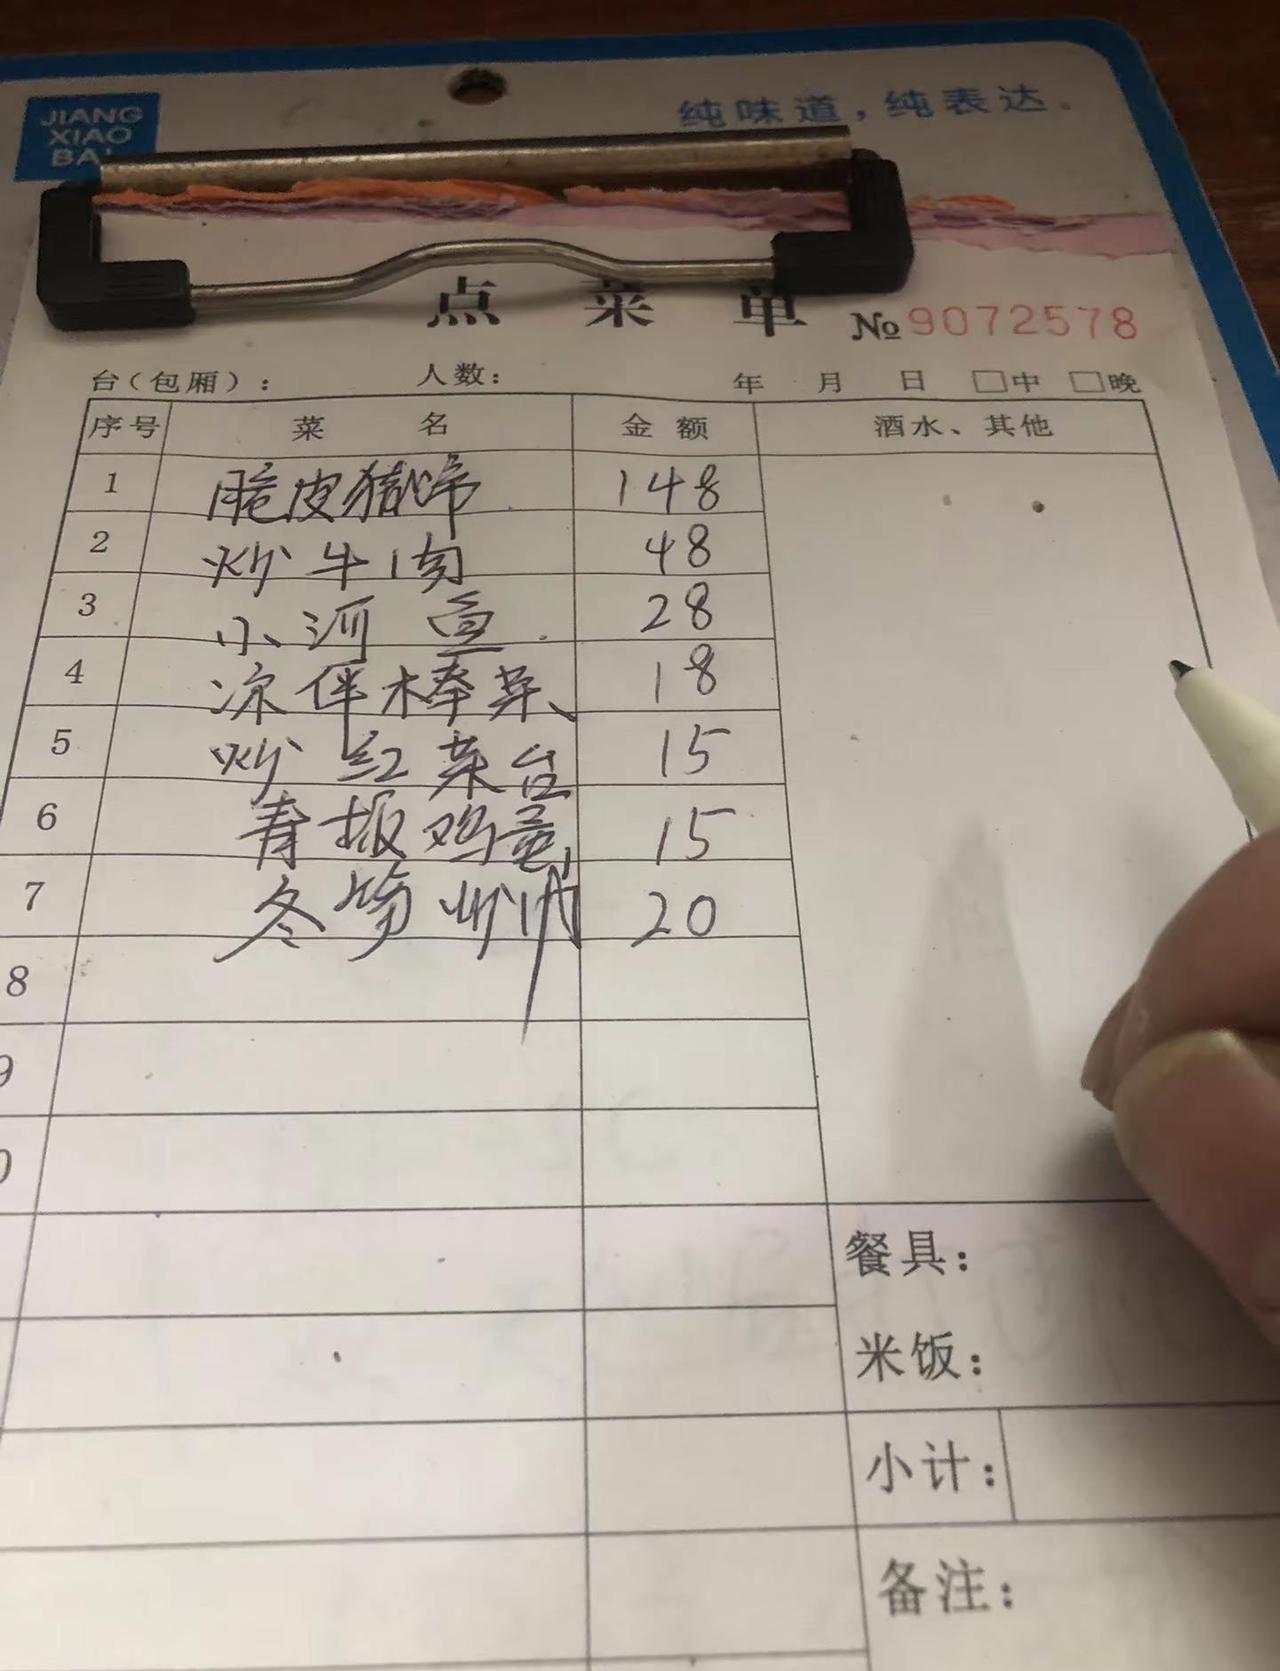 JIANG
XIAO
BAI
纯味道，纯表达.
点菜单 №9072578
台(包厢): 人数: 年 月 日 □中 □晚
序号 菜名 金额 酒水、其他
1 脆皮猪蹄 148
2 炒牛肉 48
3 小河鱼 28
4 凉伴棒菜 18
5 炒红菜台 15
6 青椒鸡蛋 15
7 冬笋炒肉 20
8
9
0
餐具:
米饭:
小计:
备注: